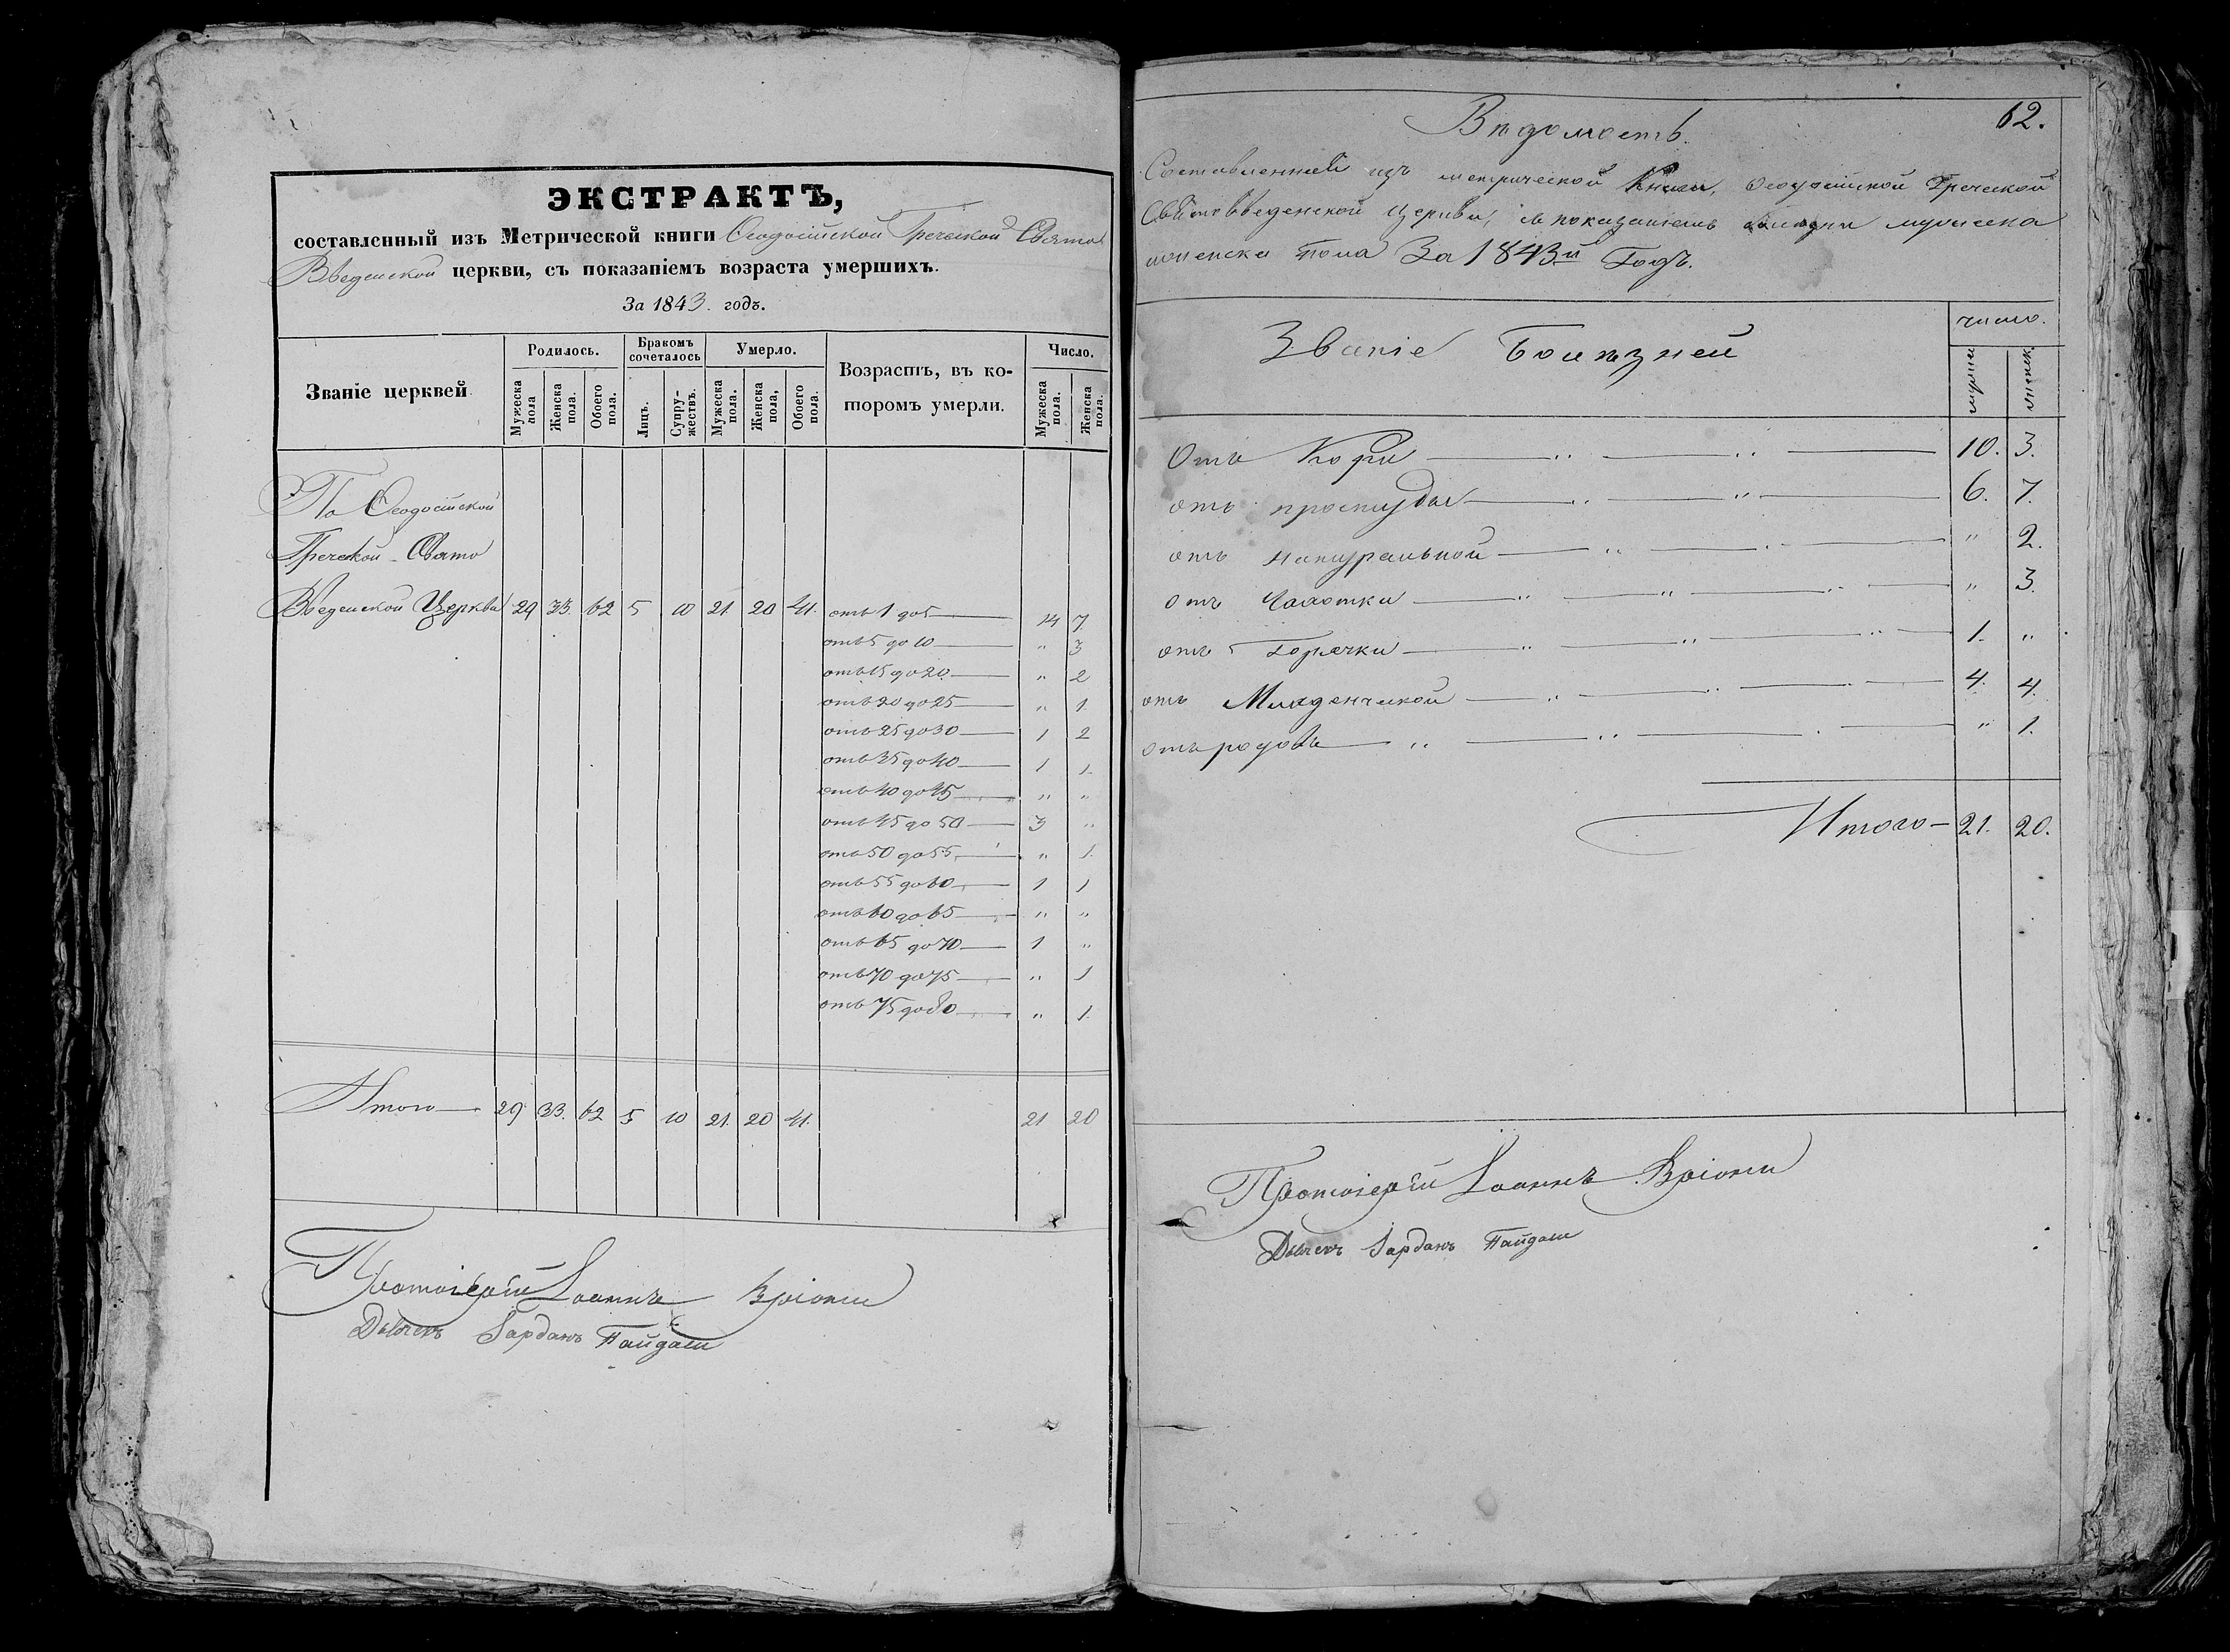 ЭКСТРАКТЪ,
составленный изъ Метрической книги Ѳеодосійской Греческой Свято
Введенской церкви, съ показаніемъ возраста умершихъ.
За 1843. годъ.
Званіе церквей
Родилось.
Бракомъ сочеталось
Умерло.
Возрастъ, въ ко-
торомъ умерли.
Число.
Мужеска пола
Женска пола.
Обоего пола.
Лицъ.
Супру-жествъ.
Мужеска пола.
Женска пола,
Обоего пола.
Мужеска пола.
Женска пола.
По Ѳеодосійской
Греческой Свято
Введенской Церкви 29 33. 62 5 10 21 20 41. отъ 1 до 5 14 7
отъ 5 до 10 " 3
отъ 15 до 20 " 2
отъ 20 до 25 " 1
отъ 25 до 30 1 2
отъ 35 до 40 1 1
отъ 40 до 45 " "
отъ 45 до 50 3 "
отъ 50 до 55 " 1
отъ 55 до 60 1 1
отъ 60 до 65 " "
отъ 65 до 70 1 "
отъ 70 до 75 " 1
отъ 75 до 80 " 1
Итого 29 33. 62 5 10 21. 20 41. 21 20
Протоіерей Іоаннъ
62.
Вѣдомость.
Составленная изъ метрической Книги, Ѳеодосійской Греческой
Святовведенской Церкви, съ показаніемъ мужеска
женска пола За 1843й Годъ.
Званіе Болѣзней
число.
мужеск
женск.
Отъ Кори 10. 3.
отъ простуды 6. 7.
отъ натуральной " 2.
отъ Чахотки " 3.
отъ Горячки 1. "
отъ Младенческой 4. 4.
отъ родовъ " 1.
Итого 21. 20.
Протоіерей Іоаннъ